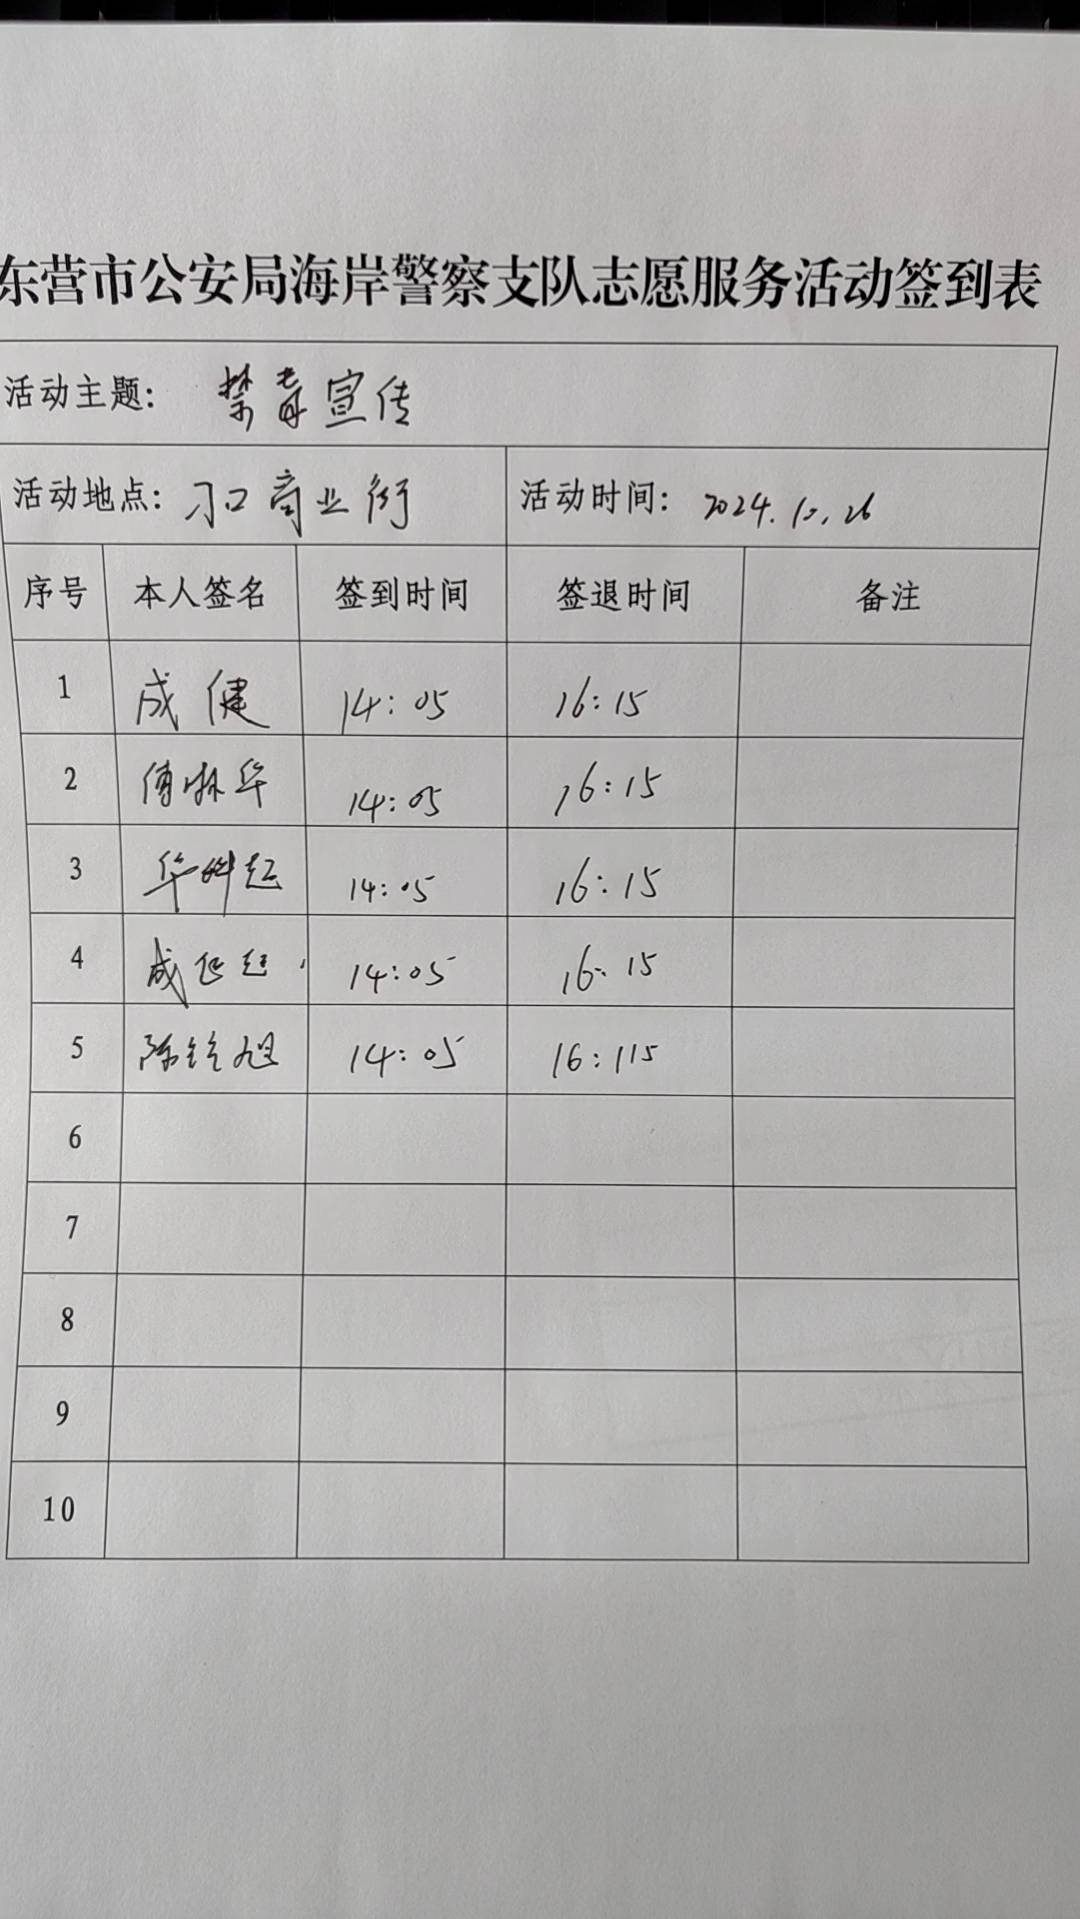 东营市公安局海岸警察支队志愿服务活动签到表
活动主题: 禁毒宣传
活动地点: 刁口商业街 活动时间: 2024.10.26
序号 本人签名 签到时间 签退时间 备注
1 成健 14:05 16:15
2 傅琳华 14:05 16:15
3 华 起 14:05 16:15
4 成延超 14:05 16:15
5 陈 旭 14:05 16:115
6
7
8
9
10